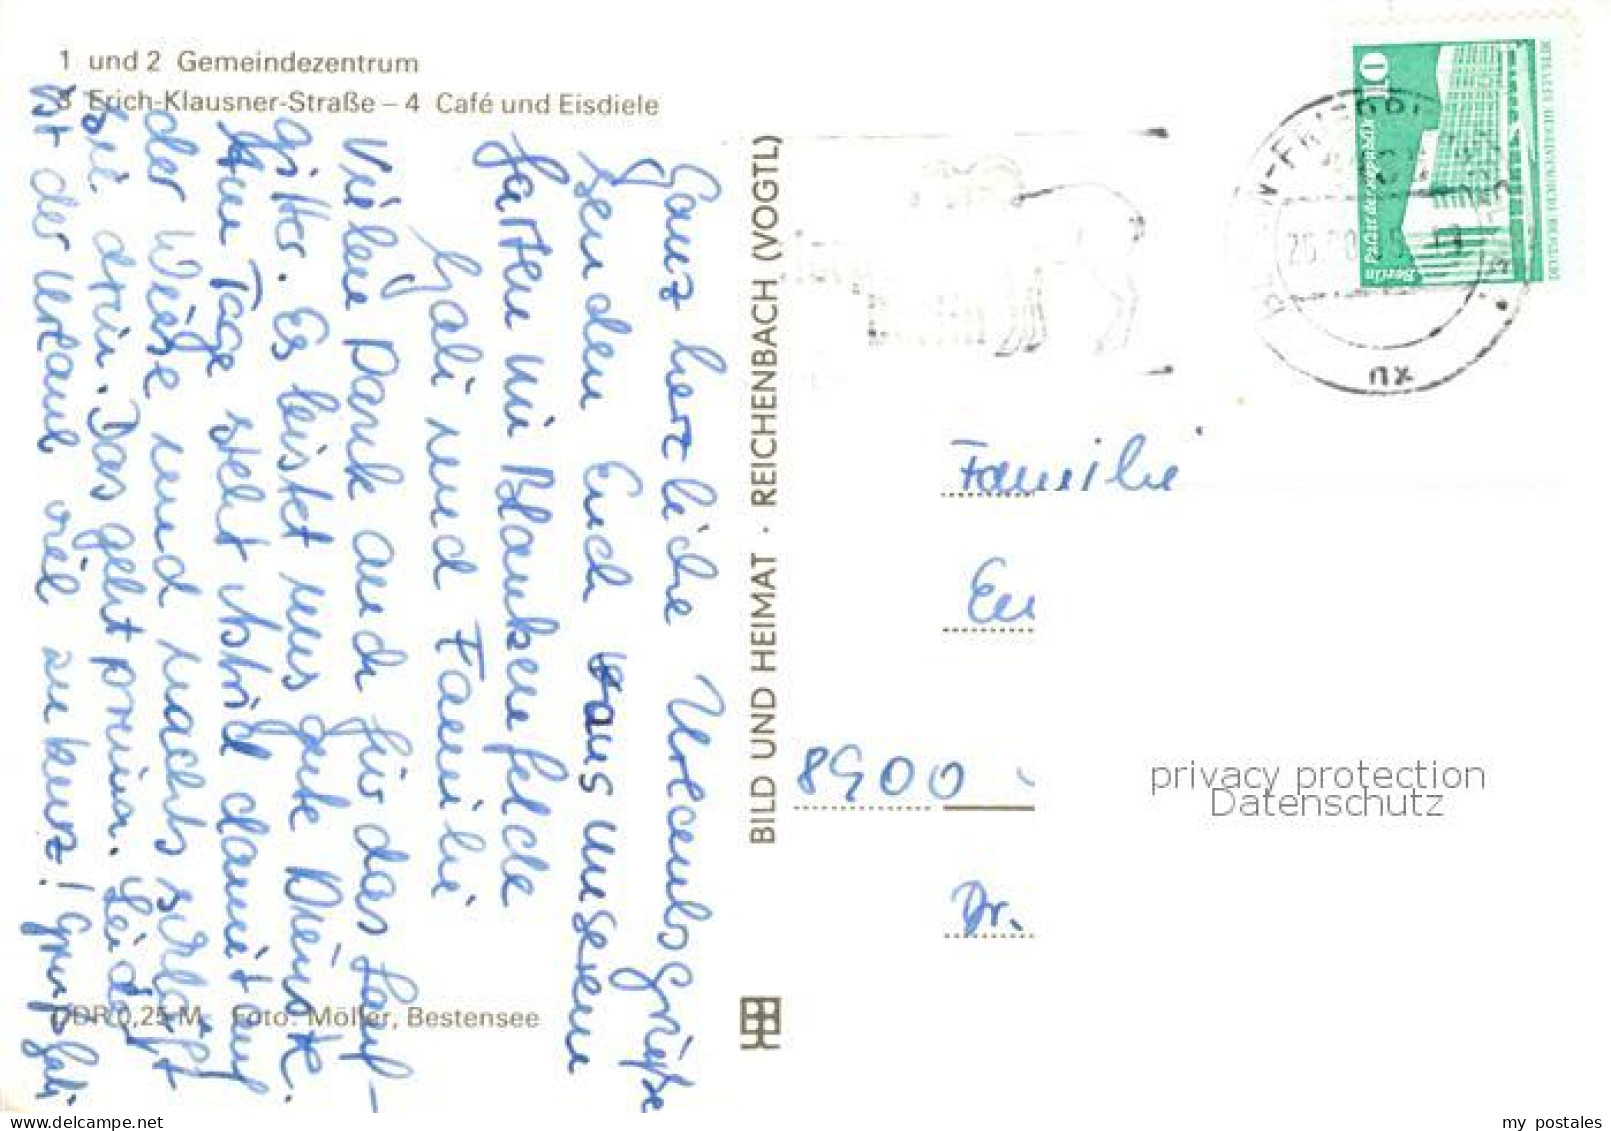 1 und 2 Gemeindezentrum
3 Erich-Klausner-Straße – 4 Café und Eisdiele
Ganz herzliche Urlaubsgrüße
senden Euch aus unserem
Garten in Blankenfelde
Gali und Familie
Vielen Dank auch für das Lauf-
gitter. Es leistet uns gute Dienste.
Am Tage steht Astrid damit auf
der Wiese und nachts schläft
sie drin. Das geht prima. Leider
ist der Urlaub viel zu kurz! Gruß Gali
DDR 0,25 M Foto: Möller, Bestensee
BILD UND HEIMAT · REICHENBACH (VOGTL)
10
Palast der Republik
Berlin
Familie
8900
Dr.
privacy protection
Datenschutz
my postales